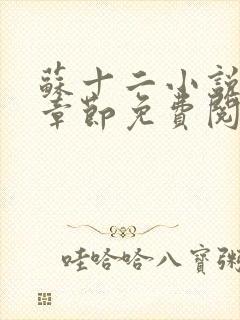 蘇十二小說
章節免費閱
哇哈哈八寶粥